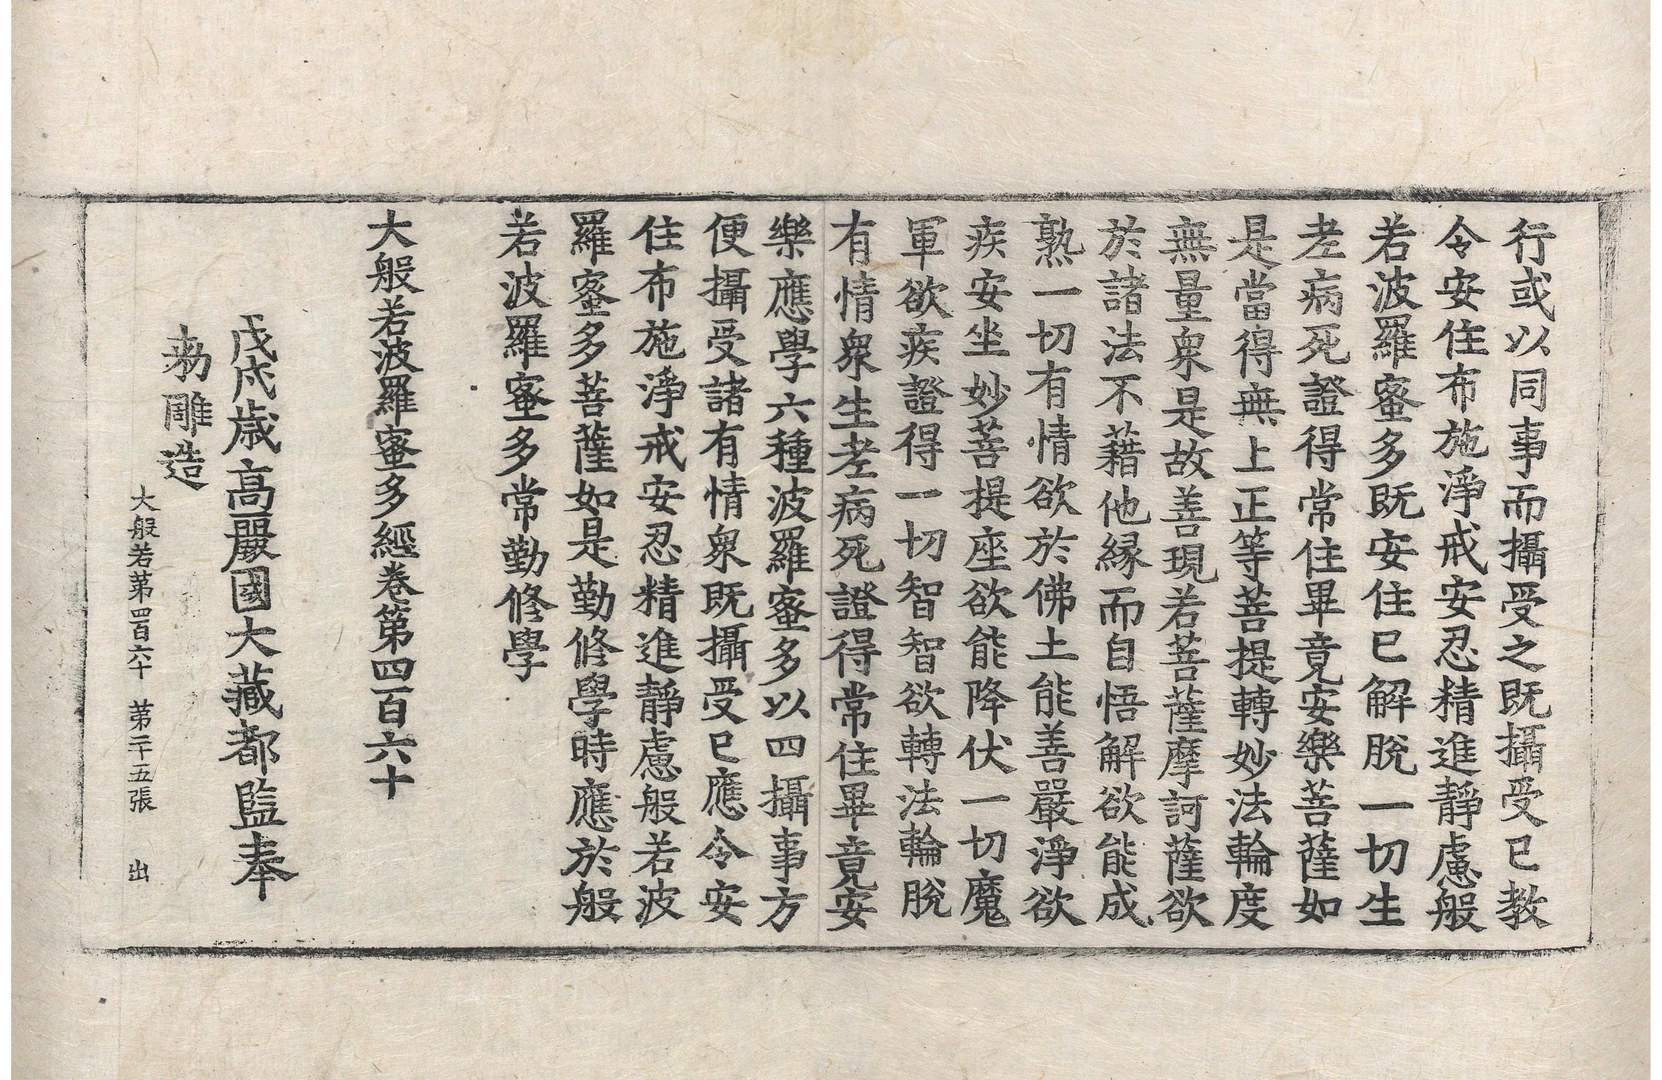 行或以同事而攝受之既攝受已教
令安住布施淨戒安忍精進靜慮般
若波羅蜜多既安住已解脫一切生
老病死證得常住畢竟安樂菩薩如
是當得無上正等菩提轉妙法輪度
無量衆是故善現若菩薩摩訶薩欲
於諸法不藉他緣而自悟解欲能成
熟一切有情欲於佛土能善嚴淨欲
疾安坐妙菩提座欲能降伏一切魔
軍欲疾證得一切智智欲轉法輪脫
有情衆生老病死證得常住畢竟安
樂應學六種波羅蜜多以四攝事方
便攝受諸有情衆既攝受已應令安
住布施淨戒安忍精進靜慮般若波
羅蜜多菩薩如是勤修學時應於般
若波羅蜜多常勤修學
大般若波羅蜜多經卷第四百六十
戊戌歲高麗國大藏都監奉
勑雕造
大般若第四百六十 第二十五張 出